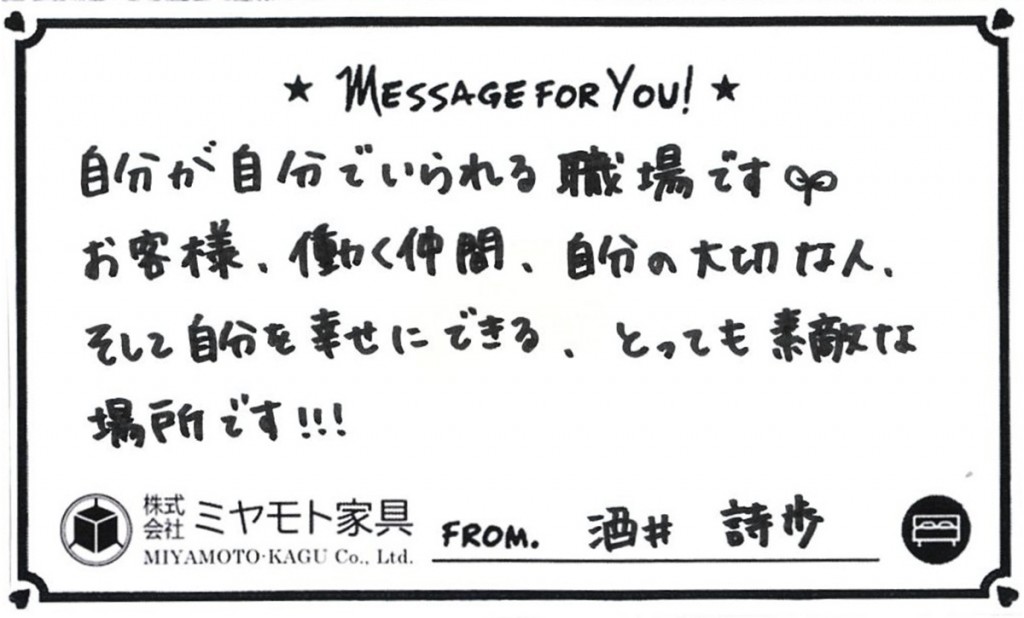 ★ MESSAGE FOR YOU! ★
自分が自分でいられる職場です
お客様、働く仲間、自分の大切な人、
そして自分を幸せにできる、とっても素敵な
場所です!!!
株式会社 ミヤモト家具
MIYAMOTO·KAGU Co., Ltd.
FROM. 酒井 詩歩